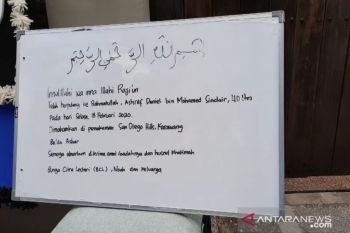 بسم الله الرحمن الرحيم
Innalillahi wa inna Illahi Roji'un
Telah berpulang ke Rahmatullah, Ashraf Daniel bin Mohamed Sinclair, 40 thn
Pada hari Selasa, 18 Februari 2020.
Dimakamkan di pemakaman San Diego Hills, Karawang
Ba'da Ashar
Semoga almarhum diterima amal ibadahnya dan husnul khotimah
Bunga Citra Lestari (BCL), Noah dan keluarga
ANTARANEWS.com